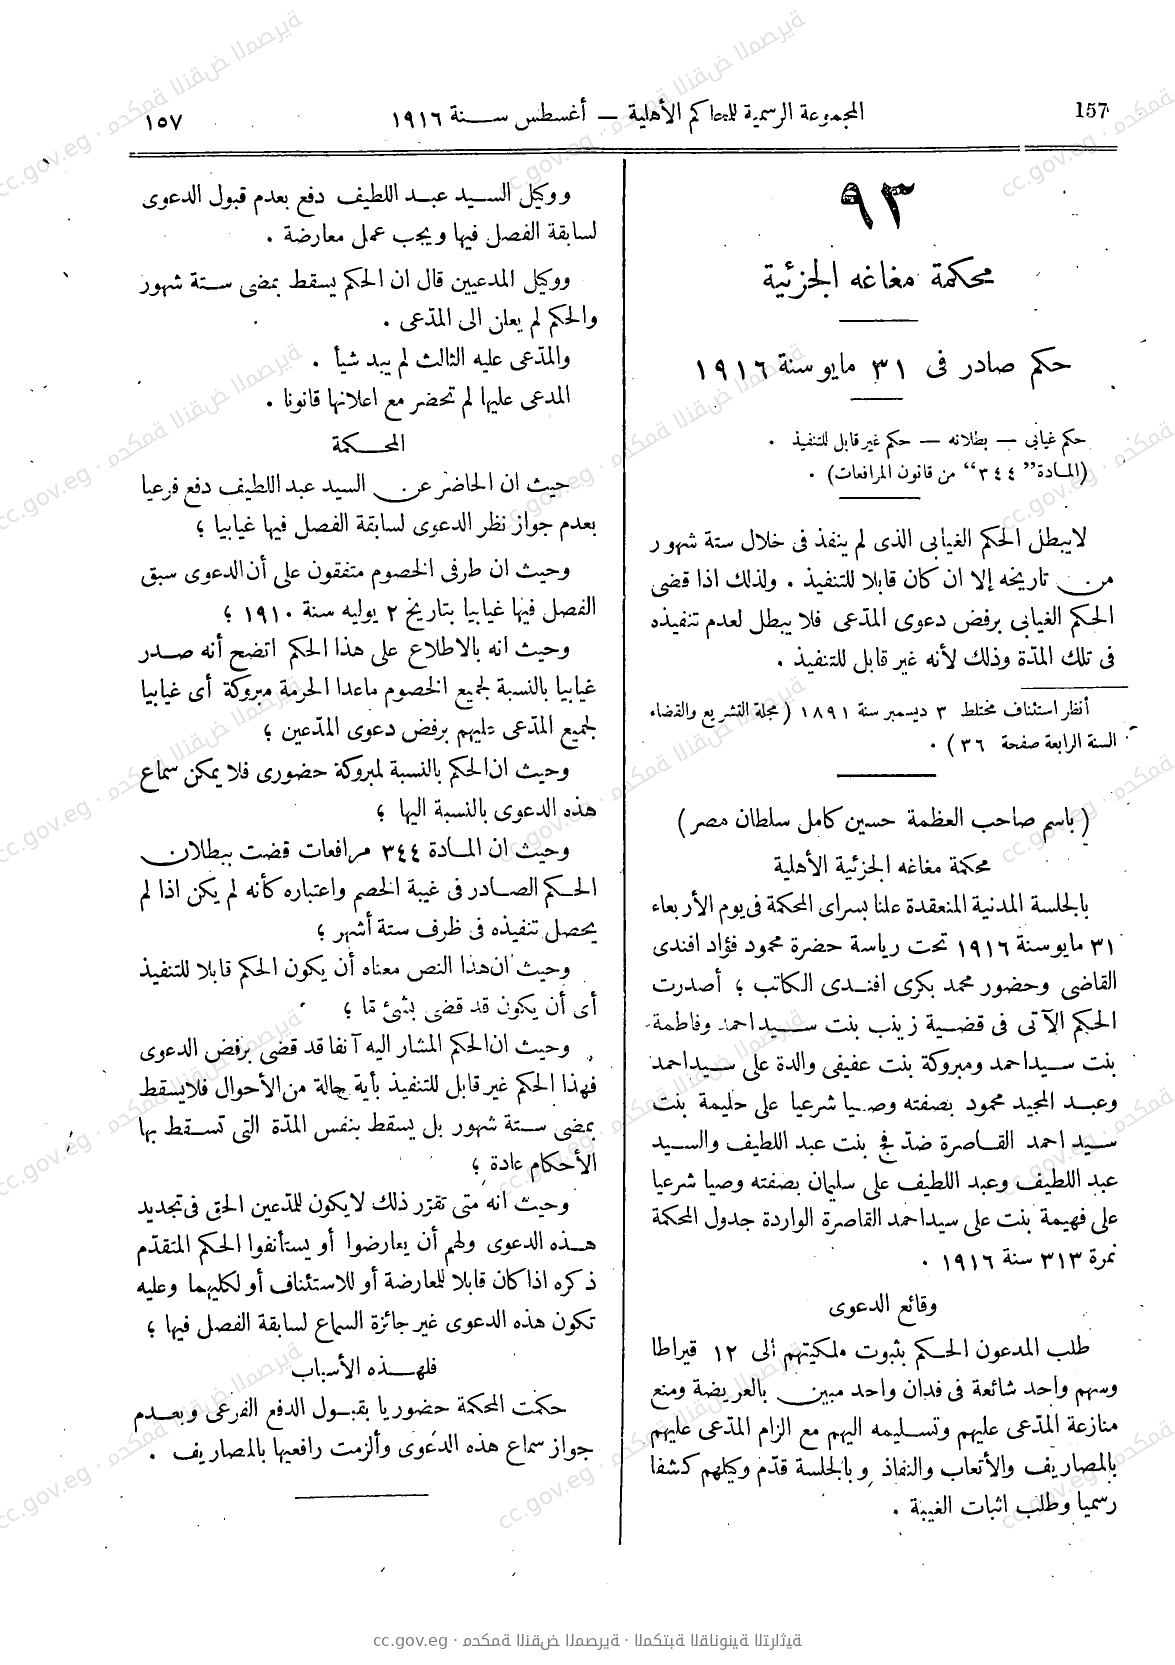 157
المجموعة الرسمية للمحاكم الأهلية — أغسطس سنة ١٩١٦
١٥٧
٩٣
محكمة مغاغه الجزئية
حكم صادر فى ٣١ مايو سنة ١٩١٦
حكم غيابى — بطلانه — حكم غير قابل للتنفيذ .
(المادة ”٣٤٤“ من قانون المرافعات) .
لايبطل الحكم الغيابى الذى لم ينفذ فى خلال ستة شهور
من تاريخه إلا ان كان قابلا للتنفيذ . ولذلك اذا قضى
الحكم الغيابى برفض دعوى المدّعى فلا يبطل لعدم تنفيذه
فى تلك المدّة وذلك لأنه غير قابل للتنفيذ .
أنظر استئناف مختلط ٣ ديسمبر سنة ١٨٩١ (مجلة التشريع والقضاء
السنة الرابعة صفحة ٣٦) .
(باسم صاحب العظمة حسين كامل سلطان مصر)
محكمة مغاغه الجزئية الأهلية
بالجلسة المدنية المنعقدة علنا بسراى المحكمة فى يوم الأربعاء
٣١ مايو سنة ١٩١٦ تحت رياسة حضرة محمود فؤاد افندى
القاضى وحضور محمد بكرى افندى الكاتب ؛ أصدرت
الحكم الآتى فى قضية زينب بنت سيد احمد وفاطمة
بنت سيد احمد ومبروكة بنت عفيفى والدة على سيد احمد
وعبد المجيد محمود بصفته وصيا شرعيا على حليمة بنت
سيد احمد القاصرة ضدّ فج بنت عبد اللطيف والسيد
عبد اللطيف وعبد اللطيف على سليمان بصفته وصيا شرعيا
على فهيمة بنت على سيد احمد القاصرة الواردة جدول المحكمة
نمرة ٣١٣ سنة ١٩١٦ .
وقائع الدعوى
طلب المدعون الحكم بثبوت ملكيتهم الى ١٢ قيراطا
وسهم واحد شائعة فى فدان واحد مبين بالعريضة ومنع
منازعة المدّعى عليهم وتسليمه اليهم مع الزام المدّعى عليهم
بالمصاريف والأتعاب والنفاذ وبالجلسة قدّم وكيلهم كشفا
رسميا وطلب اثبات الغيبة .
ووكيل السيد عبد اللطيف دفع بعدم قبول الدعوى
لسابقة الفصل فيها ويجب عمل معارضة .
ووكيل المدعيين قال ان الحكم يسقط بمضى ستة شهور
والحكم لم يعلن الى المدّعى .
والمدّعى عليه الثالث لم يبد شيأ .
المدعى عليها لم تحضر مع اعلانها قانونا .
المحكمة
حيث ان الحاضر عن السيد عبد اللطيف دفع فرعيا
بعدم جواز نظر الدعوى لسابقة الفصل فيها غيابيا ؛
وحيث ان طرفى الخصوم متفقون على أن الدعوى سبق
الفصل فيها غيابيا بتاريخ ٢ يوليه سنة ١٩١٠ ؛
وحيث انه بالاطلاع على هذا الحكم اتضح أنه صدر
غيابيا بالنسبة لجميع الخصوم ماعدا الحرمة مبروكة أى غيابيا
لجميع المدّعى عليهم برفض دعوى المدّعين ؛
وحيث ان الحكم بالنسبة لمبروكة حضورى فلا يمكن سماع
هذه الدعوى بالنسبة اليها ؛
وحيث ان المادة ٣٤٤ مرافعات قضت ببطلان
الحكم الصادر فى غيبة الخصم واعتباره كأنه لم يكن اذا لم
يحصل تنفيذه فى ظرف ستة أشهر ؛
وحيث ان هذا النص معناه أن يكون الحكم قابلا للتنفيذ
أى أن يكون قد قضى بشئ مّا ؛
وحيث ان الحكم المشار اليه آنفا قد قضى برفض الدعوى
فهذا الحكم غير قابل للتنفيذ بأية حالة من الأحوال فلا يسقط
بمضى ستة شهور بل يسقط بنفس المدّة التى تسقط بها
الأحكام عادة ؛
وحيث انه متى تقرّر ذلك لايكون للمدّعين الحق فى تجديد
هذه الدعوى ولهم أن يعارضوا أو يستأنفوا الحكم المتقدّم
ذكره اذا كان قابلا للمعارضة أو للاستئناف أو لكليهما وعليه
تكون هذه الدعوى غير جائزة السماع لسابقة الفصل فيها ؛
فلهذه الأسباب
حكمت المحكمة حضوريا بقبول الدفع الفرعى وبعدم
جواز سماع هذه الدعوى وألزمت رافعيها بالمصاريف .
cc.gov.eg · محكمة النقض المصرية · المكتبة القانونية التراثية